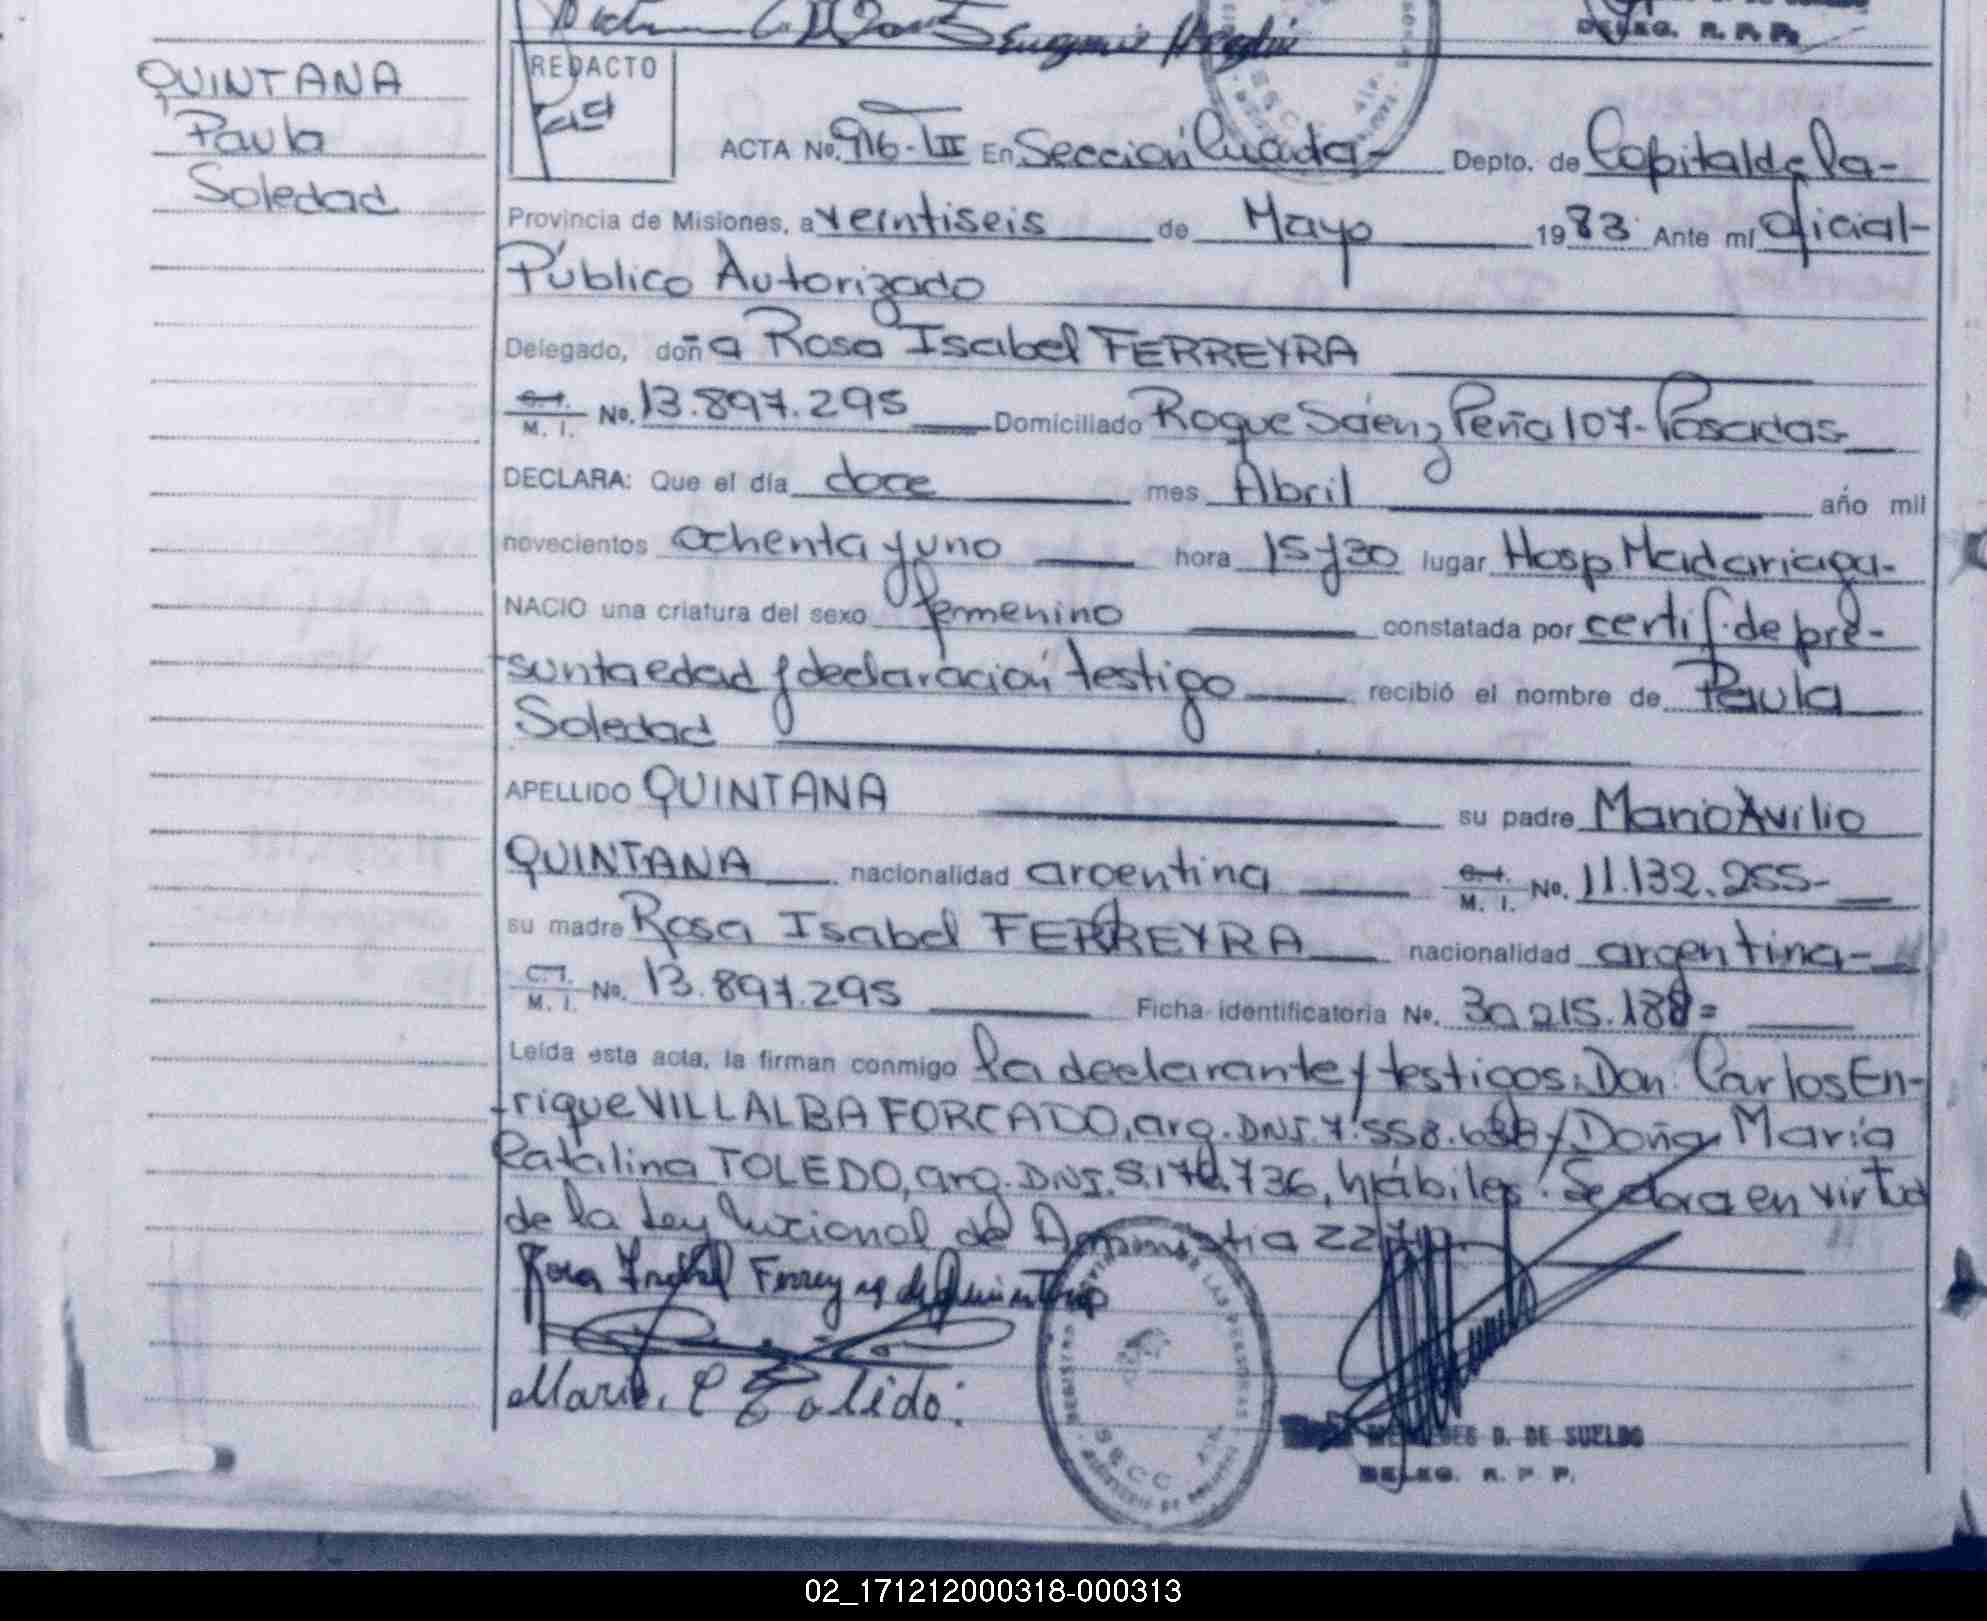 DELEG. R. P. P.
QUINTANA
Paula
Soledad
REDACTO
ACTA No. 916-TII En Sección Cuarta- Depto. de Capital de la-
Provincia de Misiones, a veintiseis de Mayo 1983 Ante mí oficial-
Público Autorizado
Delegado, doña Rosa Isabel FERREYRA
C.I. M. I. No. 13.897.295 Domiciliado Roque Sáenz Peña 107- Posadas-
DECLARA: Que el día doce mes Abril año mil
novecientos ochenta y uno hora 15 y 30 lugar Hosp Madariaga-
NACIO una criatura del sexo femenino constatada por certif. de pre-
sunta edad y declaración testigo recibió el nombre de Paula
Soledad
APELLIDO QUINTANA su padre Mario Avilio
QUINTANA nacionalidad argentina C.I. M. I. No. 11.132.255-
su madre Rosa Isabel FERREYRA nacionalidad argentina-
C.I. M. I. No. 13.897.295 Ficha identificatoria No. 30.215.188=
Leída esta acta, la firman conmigo la declarante y testigos: Don Carlos En-
rique VILLALBA FORCADO, arg. DNI. 7.558. y Doña María
Catalina TOLEDO, arg. DNI. 736, hábiles. Se labra en virtud
de la Ley Nacional de Amnistia
Rosa Isabel Ferreyra de Quintana
Maria C Toledo.
REGISTRO LAS PERSONAS
SECC
D. DE SUELDO
DELEG. R. P. P.
02_171212000318-000313